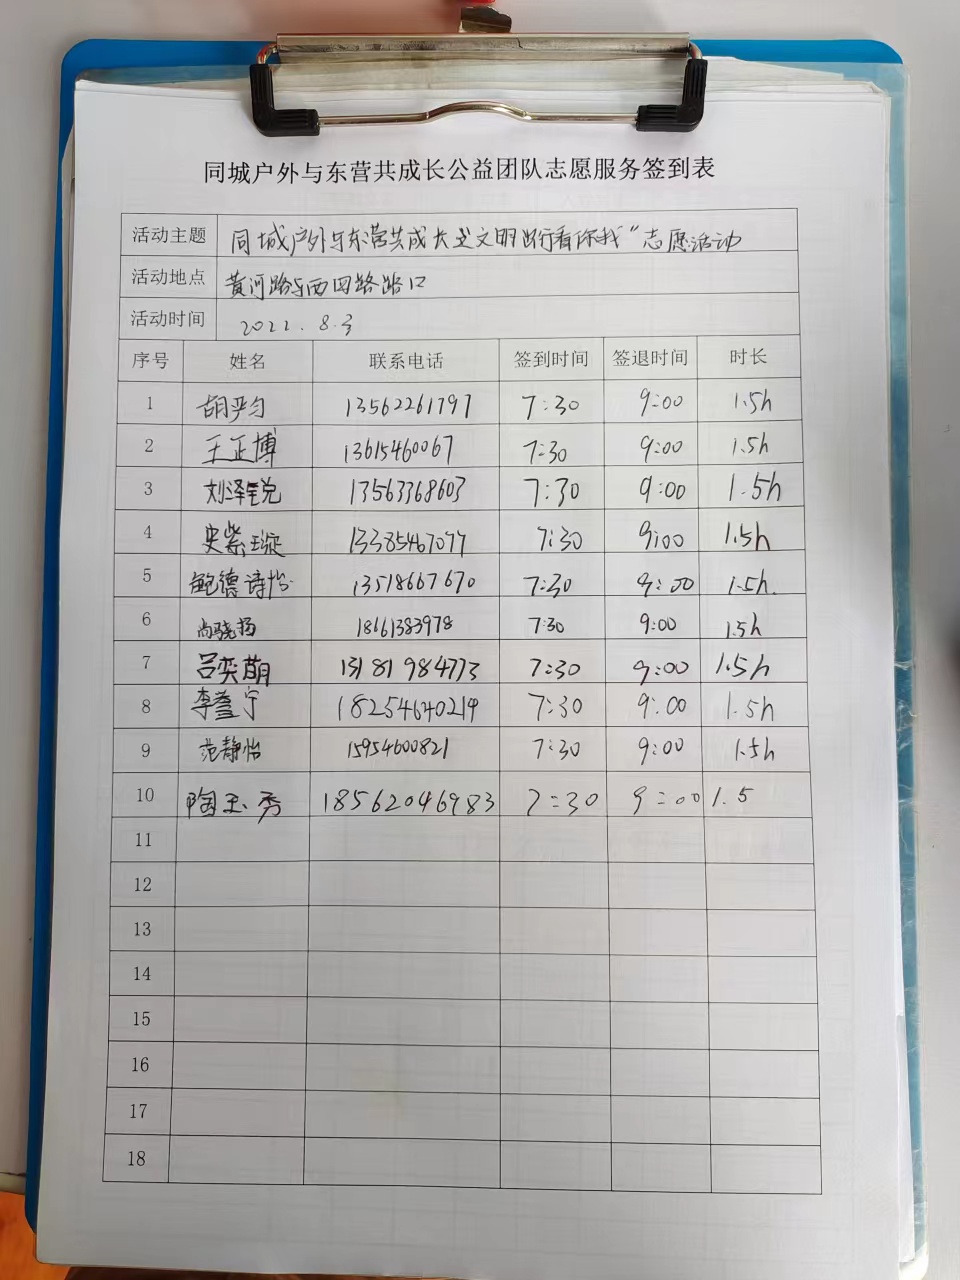 同城户外与东营共成长公益团队志愿服务签到表
活动主题 同城户外与东营共成长 文明出行看你我”志愿活动
活动地点 黄河路与西四路路口
活动时间 2022.8.3
序号 姓名 联系电话 签到时间 签退时间 时长
1 胡平均 13562261797 7:30 9:00 1.5h
2 王正博 13615460067 7:30 9:00 1.5h
3 刘泽锐 13563368603 7:30 9:00 1.5h
4 史紫璇 13385467077 7:30 9:00 1.5h
5 鲍德诗怡 13518667670 7:30 9:00 1.5h.
6 尚骁扬 18661383978 7:30 9:00 1.5h
7 吕奕萌 13181984773 7:30 9:00 1.5h
8 李 宁 18254640219 7:30 9:00 1.5h
9 范静怡 15954600821 7:30 9:00 1.5h
10 陶玉秀 18562046983 7:30 9:00 1.5
11
12
13
14
15
16
17
18